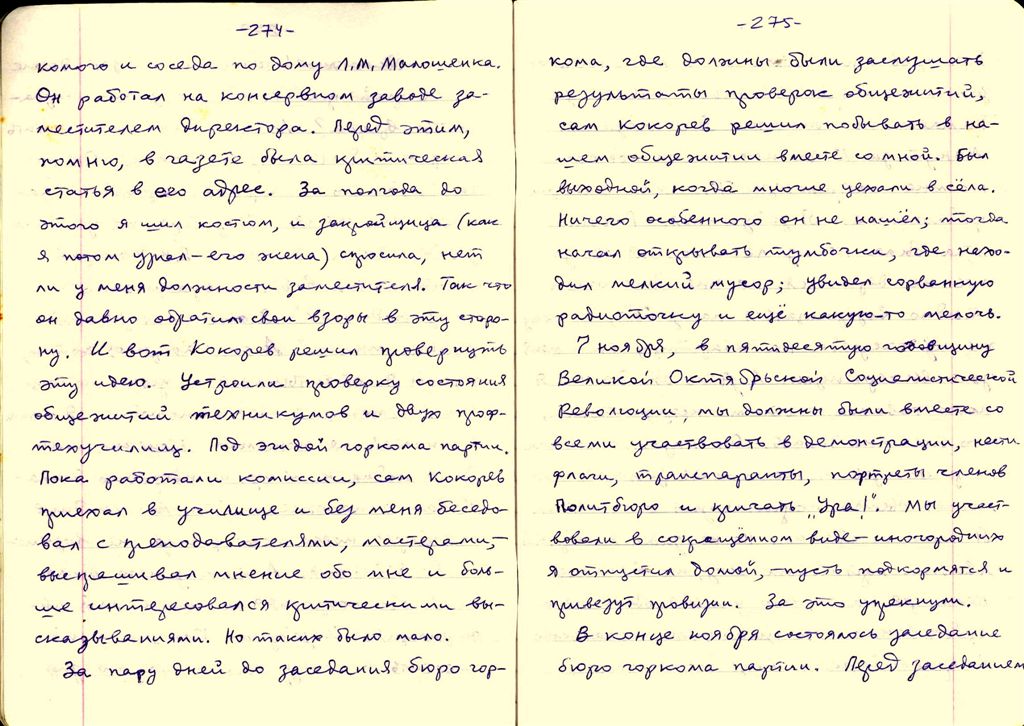 -274-
комого и соседа по дому Л.М. Малошенка.
Он работал на консервном заводе за-
местителем директора. Перед этим,
помню, в газете была критическая
статья в его адрес. За полгода до
этого я шил костюм, и закройщица (как
я потом узнал - его жена) спросила, нет
ли у меня должности заместителя. Так что
он давно обратил свои взоры в эту сторо-
ну. И вот Кокорев решил провернуть
эту идею. Устроили проверку состояния
общежитий техникумов и двух проф-
техучилищ. Под эгидой горкома партии.
Пока работали комиссии, сам Кокорев
приехал в училище и без меня беседо-
вал с преподавателями, мастерами, -
выспрашивал мнение обо мне и боль-
ше интересовался критическими вы-
сказываниями. Но таких было мало.
За пару дней до заседания бюро гор-
-275-
кома, где должны были заслушать
результаты проверок общежитий,
сам Кокорев решил побывать в на-
шем общежитии вместе со мной. Был
выходной, когда многие уехали в сёла.
Ничего особенного он не нашёл; тогда
начал открывать тумбочки, где нахо-
дил мелкий мусор; увидел сорванную
радиоточку и ещё какую-то мелочь.
7 ноября, в пятидесятую годовщину
Великой Октябрьской Социалистической
Революции мы должны были вместе со
всеми участвовать в демонстрации, нести
флаги, транспаранты, портреты членов
Политбюро и кричать „Ура!". Мы участ-
вовали в сокращённом виде - иногородних
я отпустил домой, - пусть подкормятся и
привезут провизии. За это упрекнули.
В конце ноября состоялось заседание
бюро горкома партии. Перед заседанием